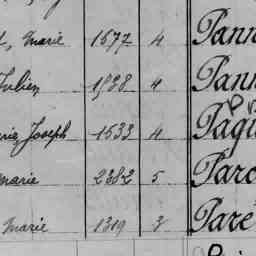 Marie 1677 4 Pann
Julien 1538 4 Pann
Joseph 1533 4 Pagu
Marie 2382 5 Paro
Marie 1319 3 Paré